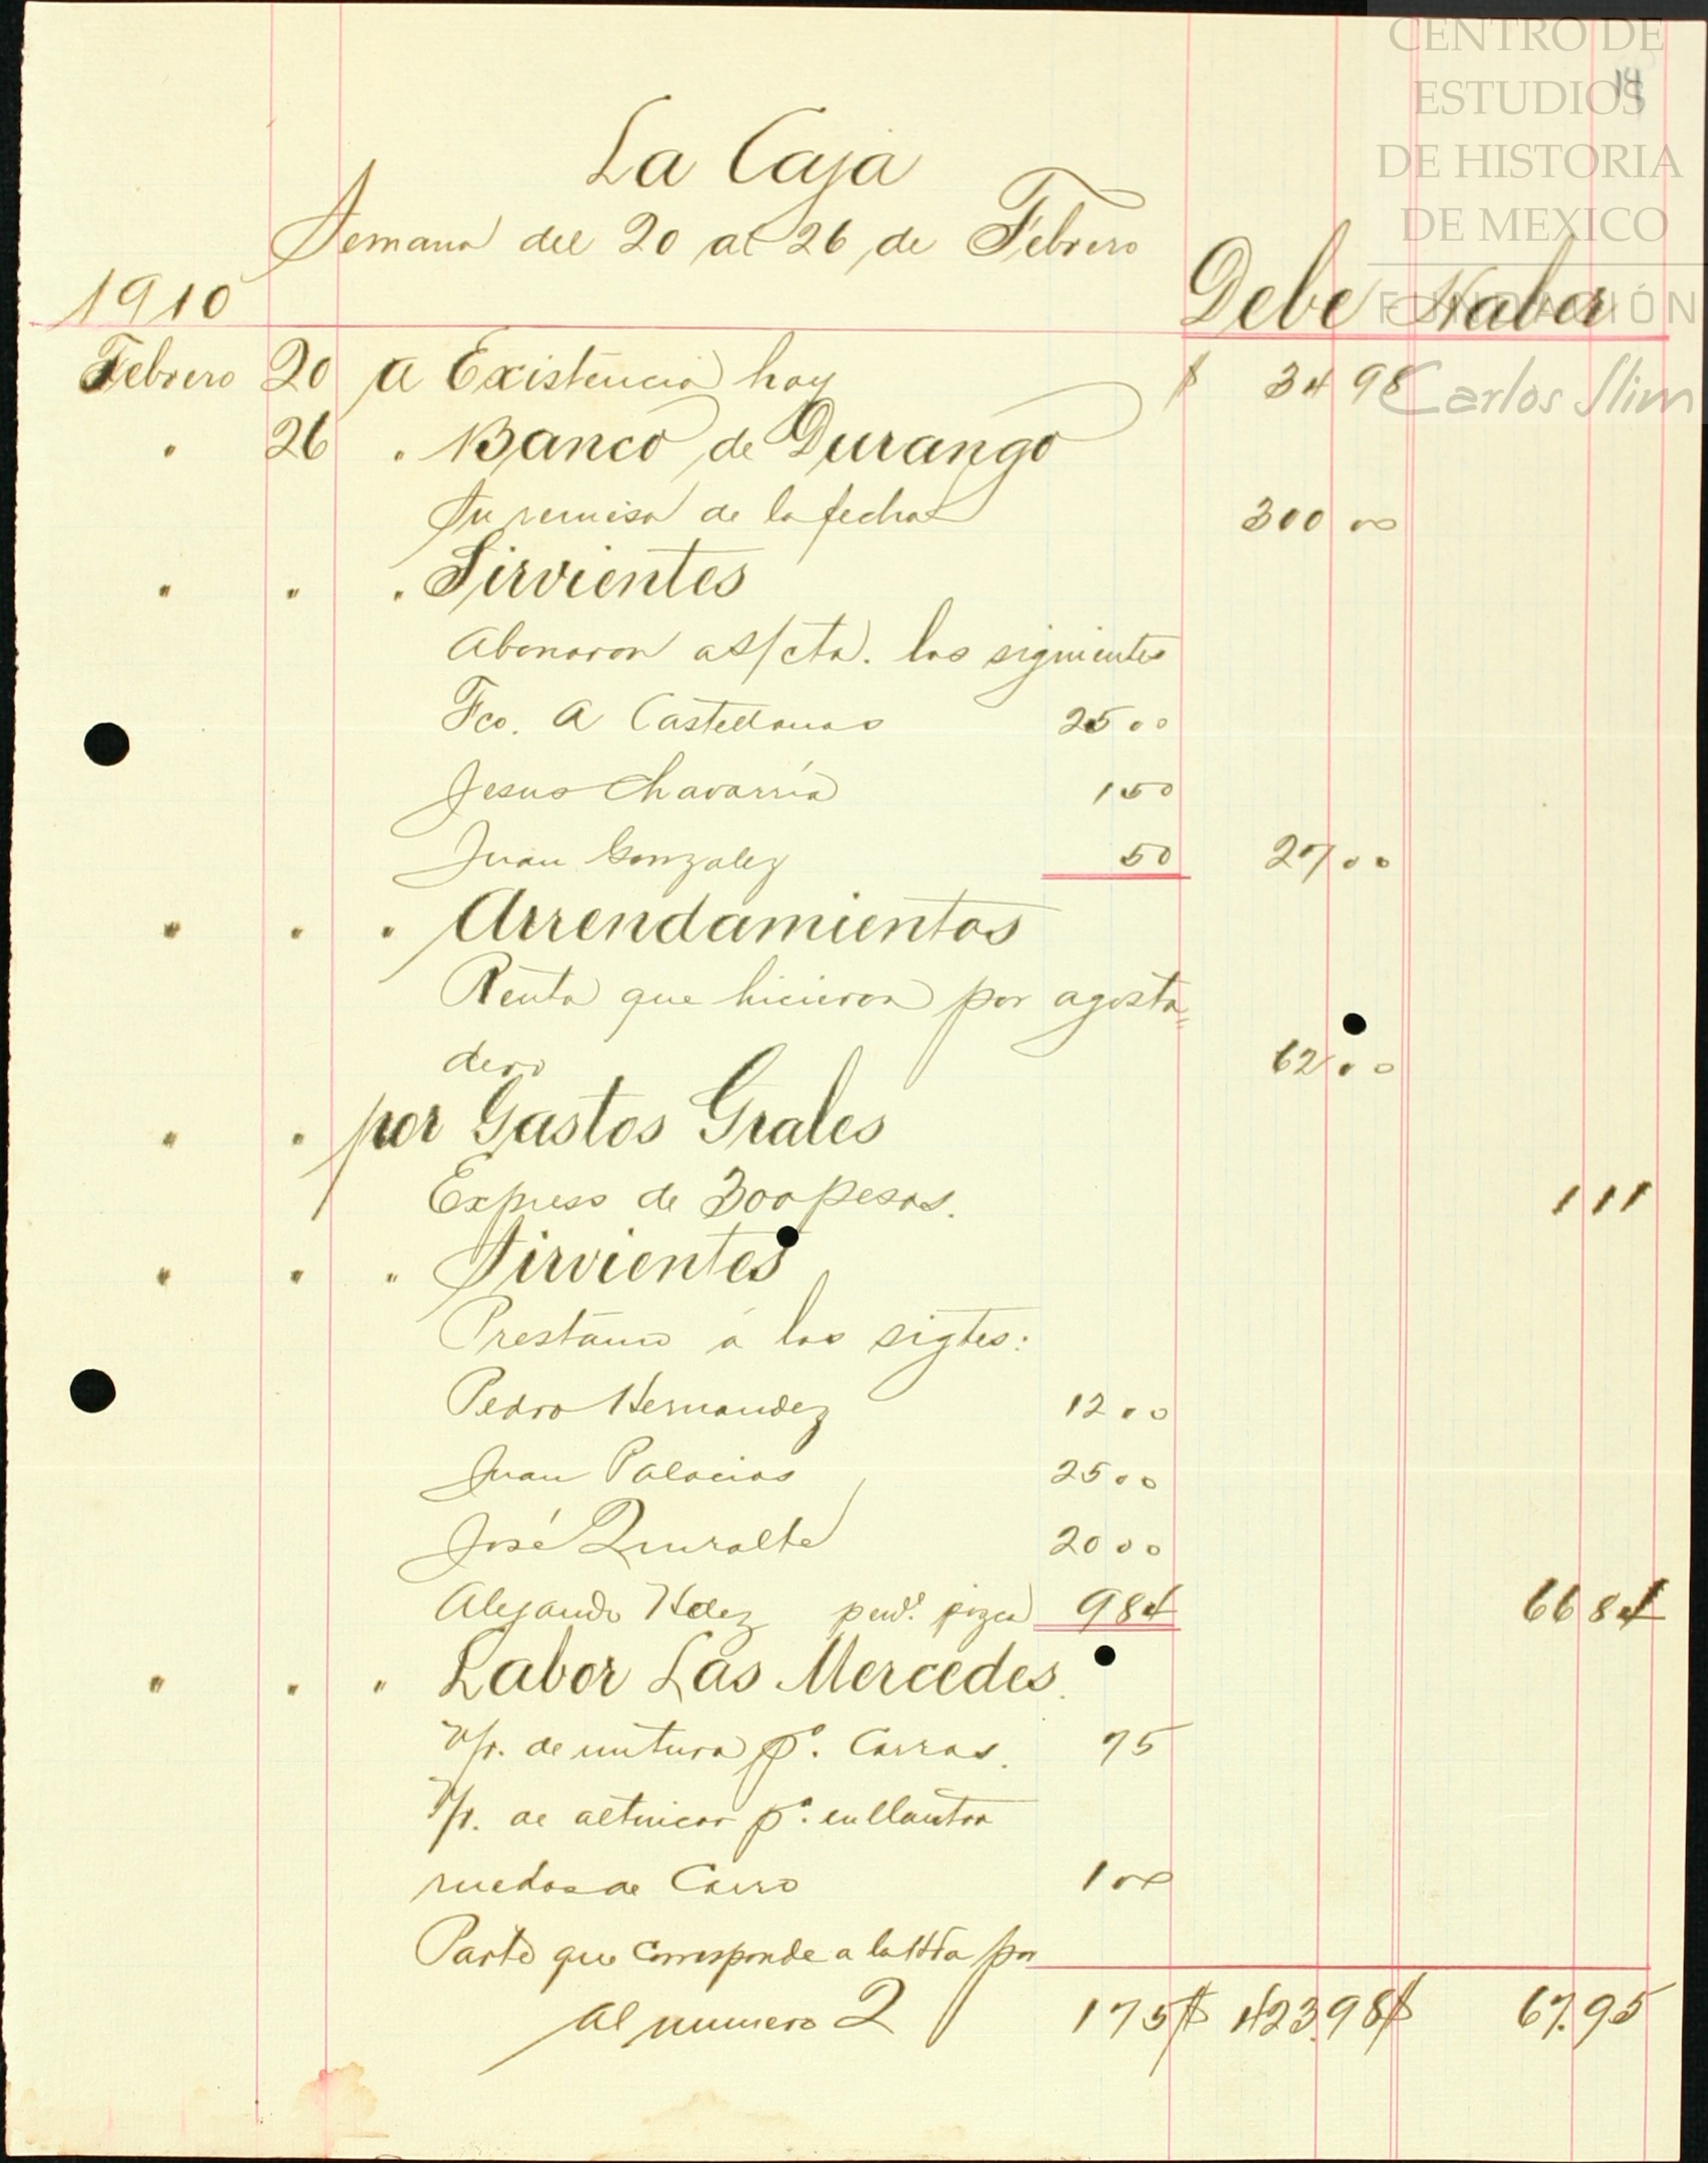 CENTRO DE
ESTUDIOS
DE HISTORIA
DE MEXICO
FUNDACIÓN
Carlos Slim
La Caja
Semana del 20 al 26 de Febrero
1910 Debe Haber
Febrero 20 a Existencia hoy $ 34 98
" 26 " Banco de Durango
Su remisa de la fecha 300 00
" " " Sirvientes
Abonaron a S/cta. los siguientes
Fco. A Castellanos 25 00
Jesus Chavarría 1 50
Juan Gonzalez 50 27 00
" " " Arrendamientos
Renta que hicieron por agosta=
dero 62 00
" " por Gastos Grales
Expreso de 300 pesos. 1 11
" " " Sirvientes
Prestamo á los sigtes:
Pedro Hernandez 12 00
Juan Palacios 25 00
José Quiralte 20 00
Alejandro Hdez pizca 9 84 66 84
" " " Labor Las Mercedes.
V/r. de untura pa. Carros. 75
V/r. de pa. enllantar
ruedas de Carro 1 00
Parte que corresponde a la Hda por
al numero 2 1 75 $ 423.98 $ 67.95